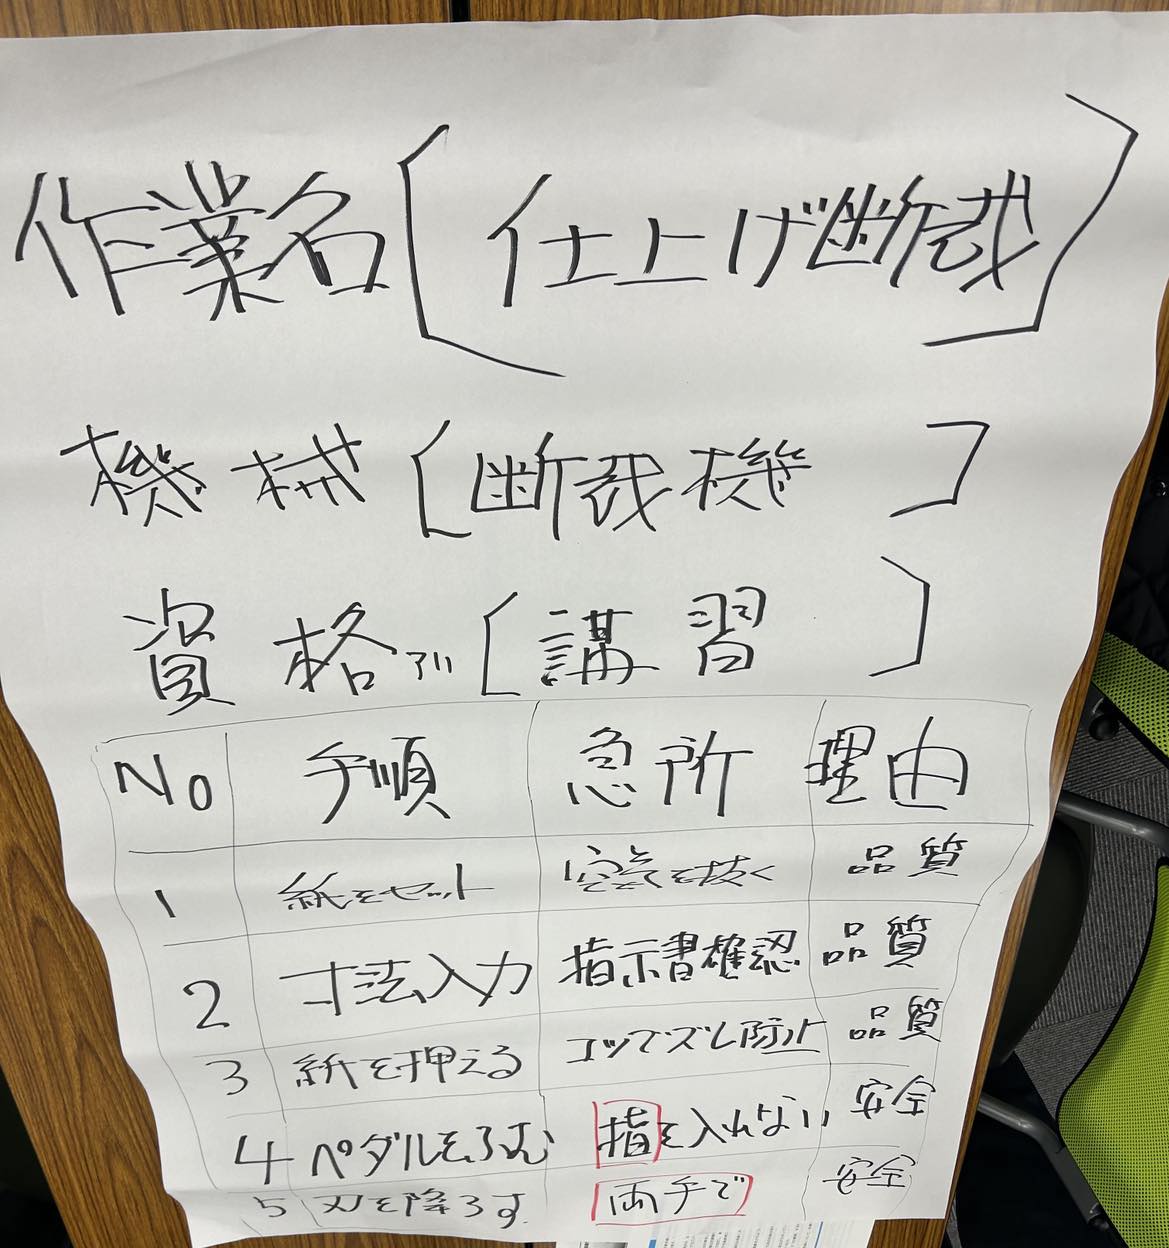 作業名〔仕上げ断裁〕
機械〔断裁機〕
資格〔講習〕
No 手順 急所 理由
1 紙をセット 空気を抜く 品質
2 寸法入力 指示書確認 品質
3 紙を押える コツでズレ防止 品質
4 ペダルをふむ 指を入れない 安全
5 刃を降ろす 両手で 安全